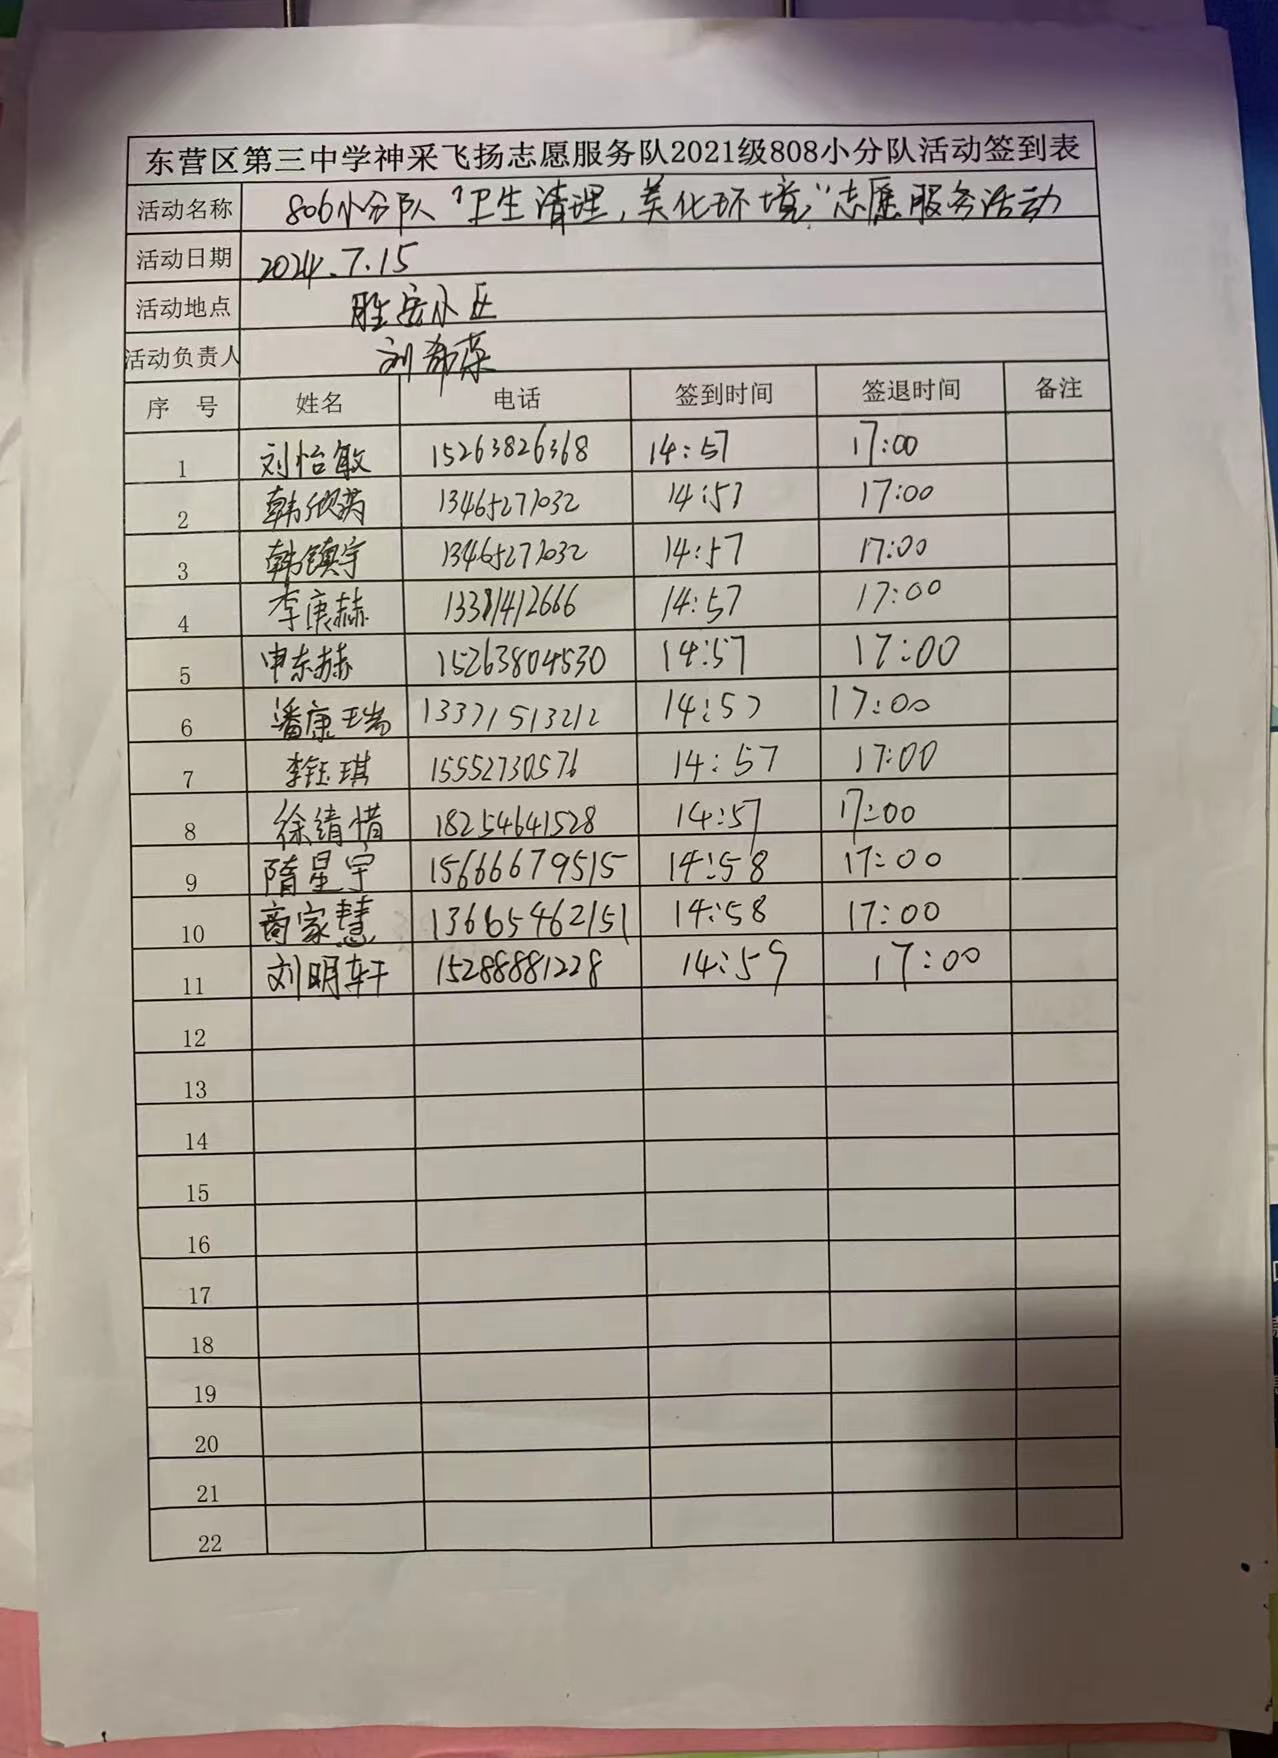 东营区第三中学神采飞扬志愿服务队2021级808小分队活动签到表
活动名称 806小分队“卫生清理,美化环境”志愿服务活动
活动日期 2024.7.15
活动地点 胜安小区
活动负责人 刘希荣
序 号 姓名 电话 签到时间 签退时间 备注
1 刘怡敏 15263826368 14:57 17:00
2 韩欣芮 13465271032 14:57 17:00
3 韩镇宇 13465271032 14:57 17:00
4 李庚赫 13381412666 14:57 17:00
5 申东赫 15263804530 14:57 17:00
6 潘康瑞 13371513212 14:57 17:00
7 李钰琪 15552730576 14:57 17:00
8 徐绮惜 18254641528 14:57 17:00
9 隋星宇 15666679515 14:58 17:00
10 商家慧 13665462151 14:58 17:00
11 刘明轩 15288881228 14:59 17:00
12
13
14
15
16
17
18
19
20
21
22